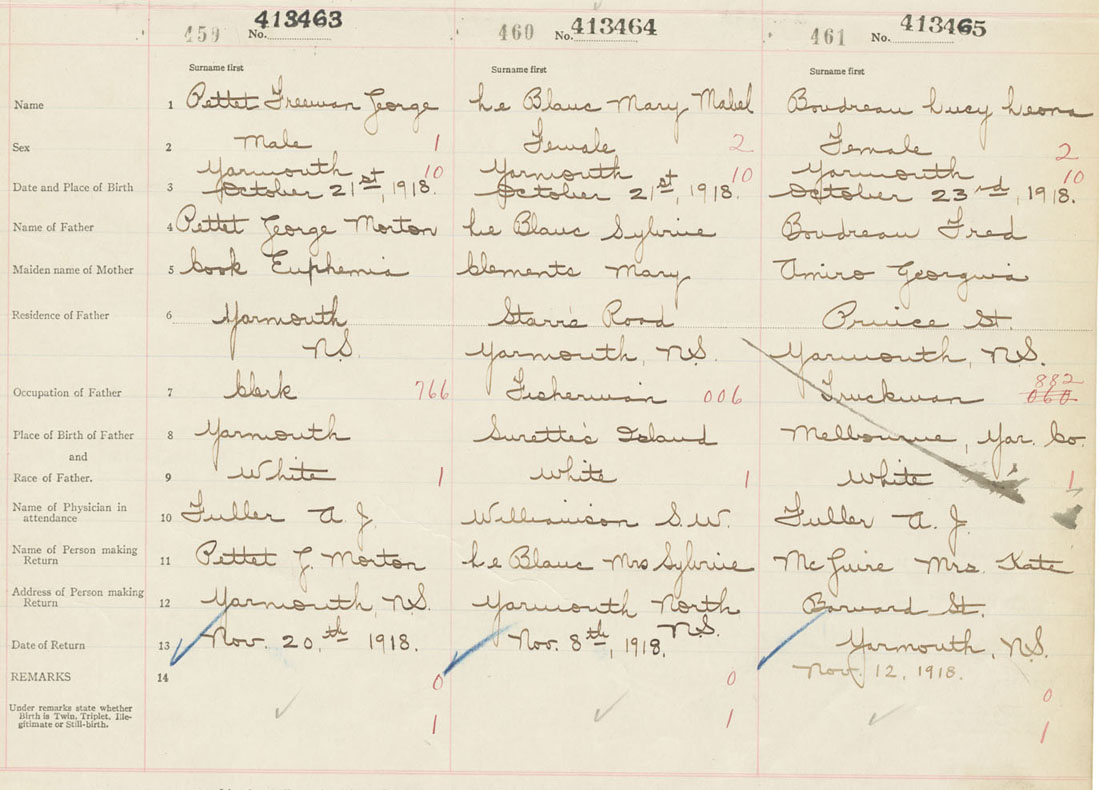 459 No. 413463 460 No. 413464 461 No. 413465
Surname first Surname first Surname first
Name 1 Pettet Freeman George Le Blanc Mary Mabel Boudreau Lucy Leona
Sex 2 Male 1 Female 2 Female 2
Yarmouth 10 Yarmouth 10 Yarmouth 10
Date and Place of Birth 3 October 21st, 1918. October 21st, 1918. October 23rd, 1918.
Name of Father 4 Pettet George Morton Le Blanc Sylvine Boudreau Fred
Maiden name of Mother 5 Cook Euphemia Clements Mary Amiro Georgina
Residence of Father 6 Yarmouth Starrs Road Prince St.
N.S. Yarmouth, N.S. Yarmouth, N.S.
882
Occupation of Father 7 Clerk 766 Fisherman 006 Truckman 060
Place of Birth of Father 8 Yarmouth Surette's Island Melbourne, Yar. Co.
and
Race of Father. 9 White 1 White 1 White 1
Name of Physician in
attendance 10 Fuller A. J. Williamson S.W. Fuller A. J.
Name of Person making
Return 11 Pettet G. Morton Le Blanc Mrs Sylvine McGuire Mrs. Kate
Address of Person making
Return 12 Yarmouth, N.S. Yarmouth North Barnard St.
N.S.
Date of Return 13 Nov. 20,th 1918. Nov. 8th, 1918. Yarmouth, N.S.
Nov. 12, 1918.
REMARKS 14 0 0 0
Under remarks state whether
Birth is Twin, Triplet, Ille-
gitimate or Still-birth. 1 1 1